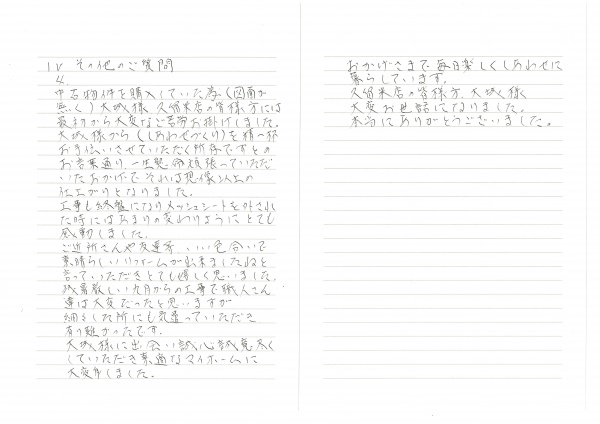 IV その他のご質問
中古物件を購入していた為(図面が
無く)大城様 久留米店の皆様方には
最初から大変なご苦労お掛けしました。
大城様から(しあわせづくり)を精一杯
お手伝いさせていただく所存ですとの
お言葉通り、一生懸命頑張っていただ
いたおかげでそれは想像以上の
仕上がりとなりました。
工事も終盤になりメッシュシートを外され
た時にはあまりの変わりようにとても
感動しました。
ご近所さんや友達等、いい色合いで
素晴らしいリフォームが出来ましたねと
言っていただきとても嬉しく思いました。
残暑厳しい九月からの工事で職人さん
達は大変だったと思いますが
細々した所にも気遣っていただき
有り難かったです。
大城様に出会い誠心誠意尽く
していただき素適なマイホームに
大変身しました。
おかげさまで毎日楽しくしあわせに
暮らしています。
久留米店の皆様方、大城様
大変お世話になりました。
本当にありがとうございました。